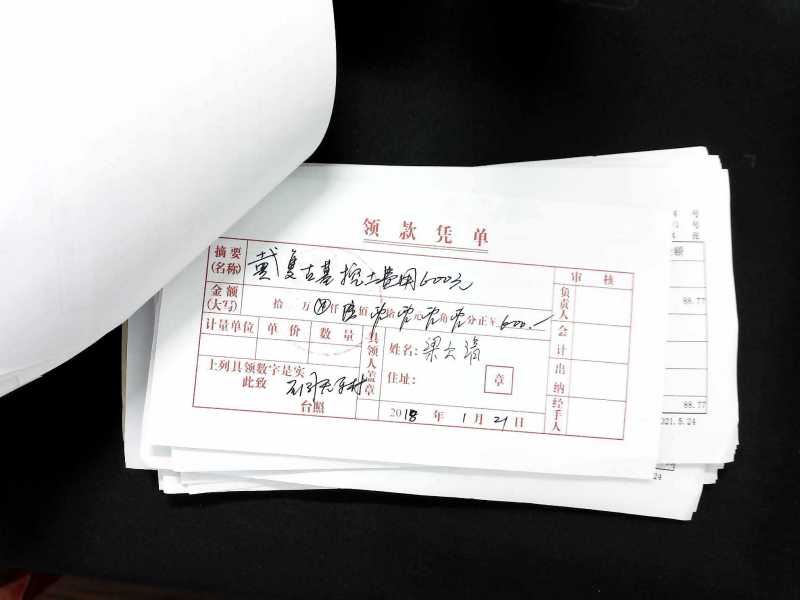 领款凭单
摘要(名称) 戴复古墓挖土费用600元
审核
金额(大写) 拾 万 仟 陆 佰 拾 元 角 分正 ¥ 600.—
负责人
计量单位 单价 数量
具领人盖章
姓名: 梁
会计
上列具领数字是实
住址:
章
出纳
此致
台照
2018 年 1 月 21 日
经手人
号
号
张
88.77
88.77
021.5.24
24